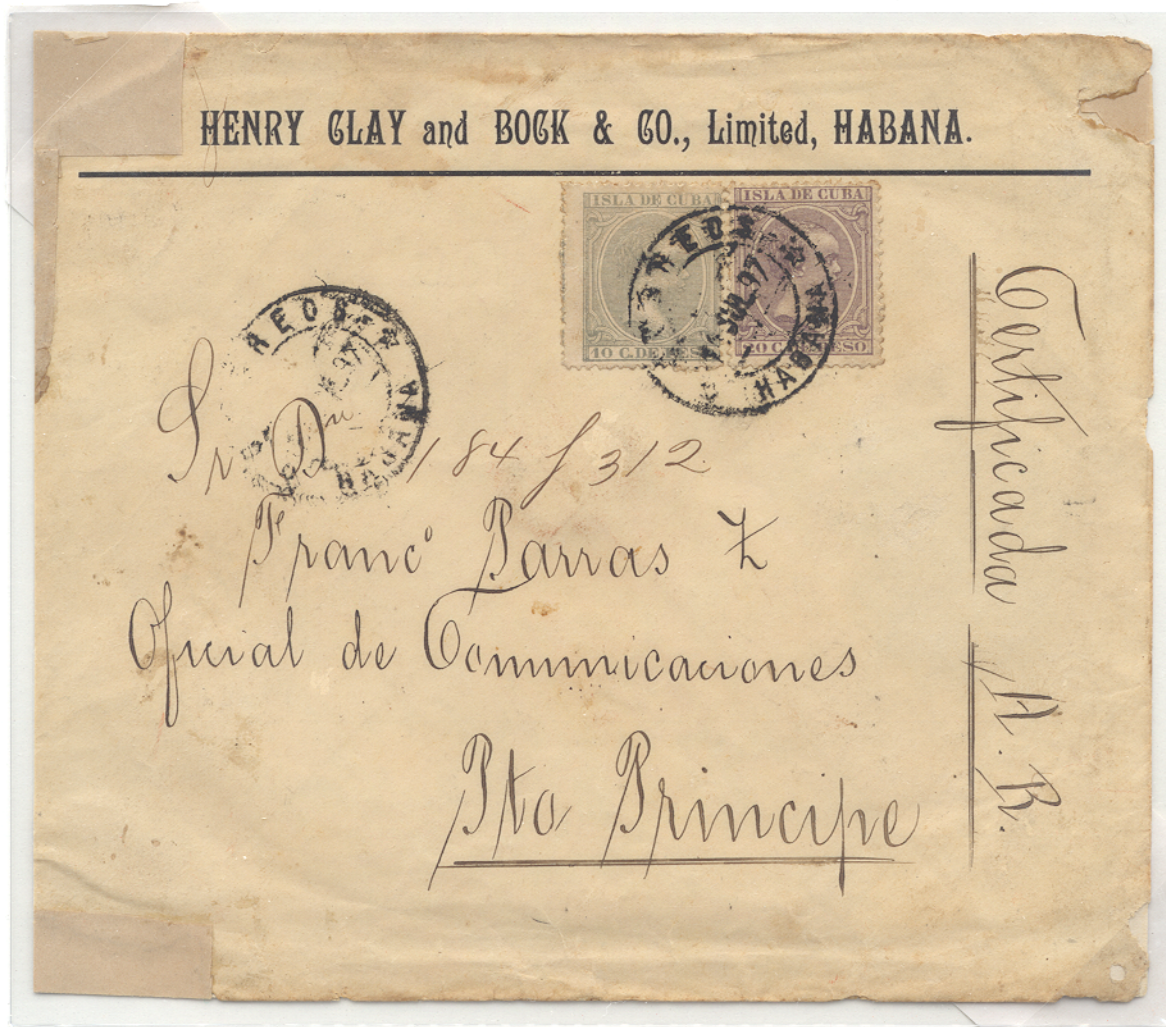 HENRY CLAY and BOCK & CO., Limited, HABANA.
ISLA DE CUBA
10 C. DE PESO
ISLA DE CUBA
20 C. DE PESO
CORREOS
JUL 97
HABANA
REOS
97
HABANA
Certificada A. R.
Sr. Dn.
184 f 312
Franco Parras
Oficial de Comunicaciones
Pto Principe